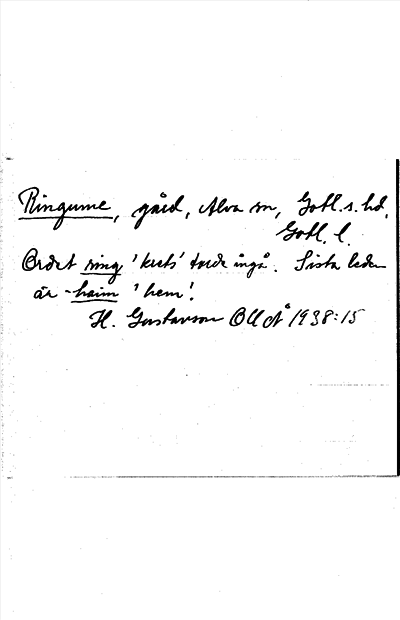 Ringume, gård, Alva sn, Gotl. s. hd,
Gotl. l.
Ordet ring 'krets' torde ingå. Sista leden
är -haim 'hem'.
H. Gustavson OUÅ 1938:15